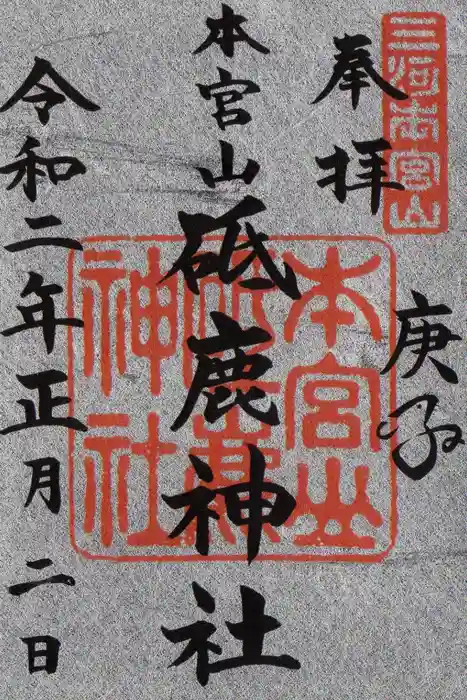 三河本宮山
奉拝
庚子
本宮山砥鹿神社
本宮山
砥鹿
神社
令和二年正月二日